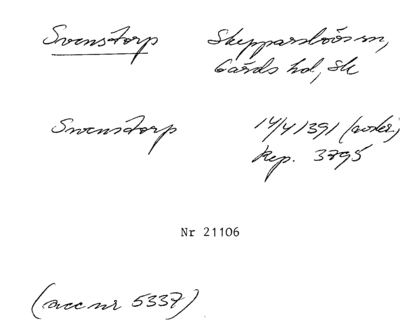 Svenstorp Skepparslövs sn,
Gärds hd, Sk
Svenstorp 14/4 1391 (avskr.)
Rep. 3795
Nr 21106
(acc nr 5337)